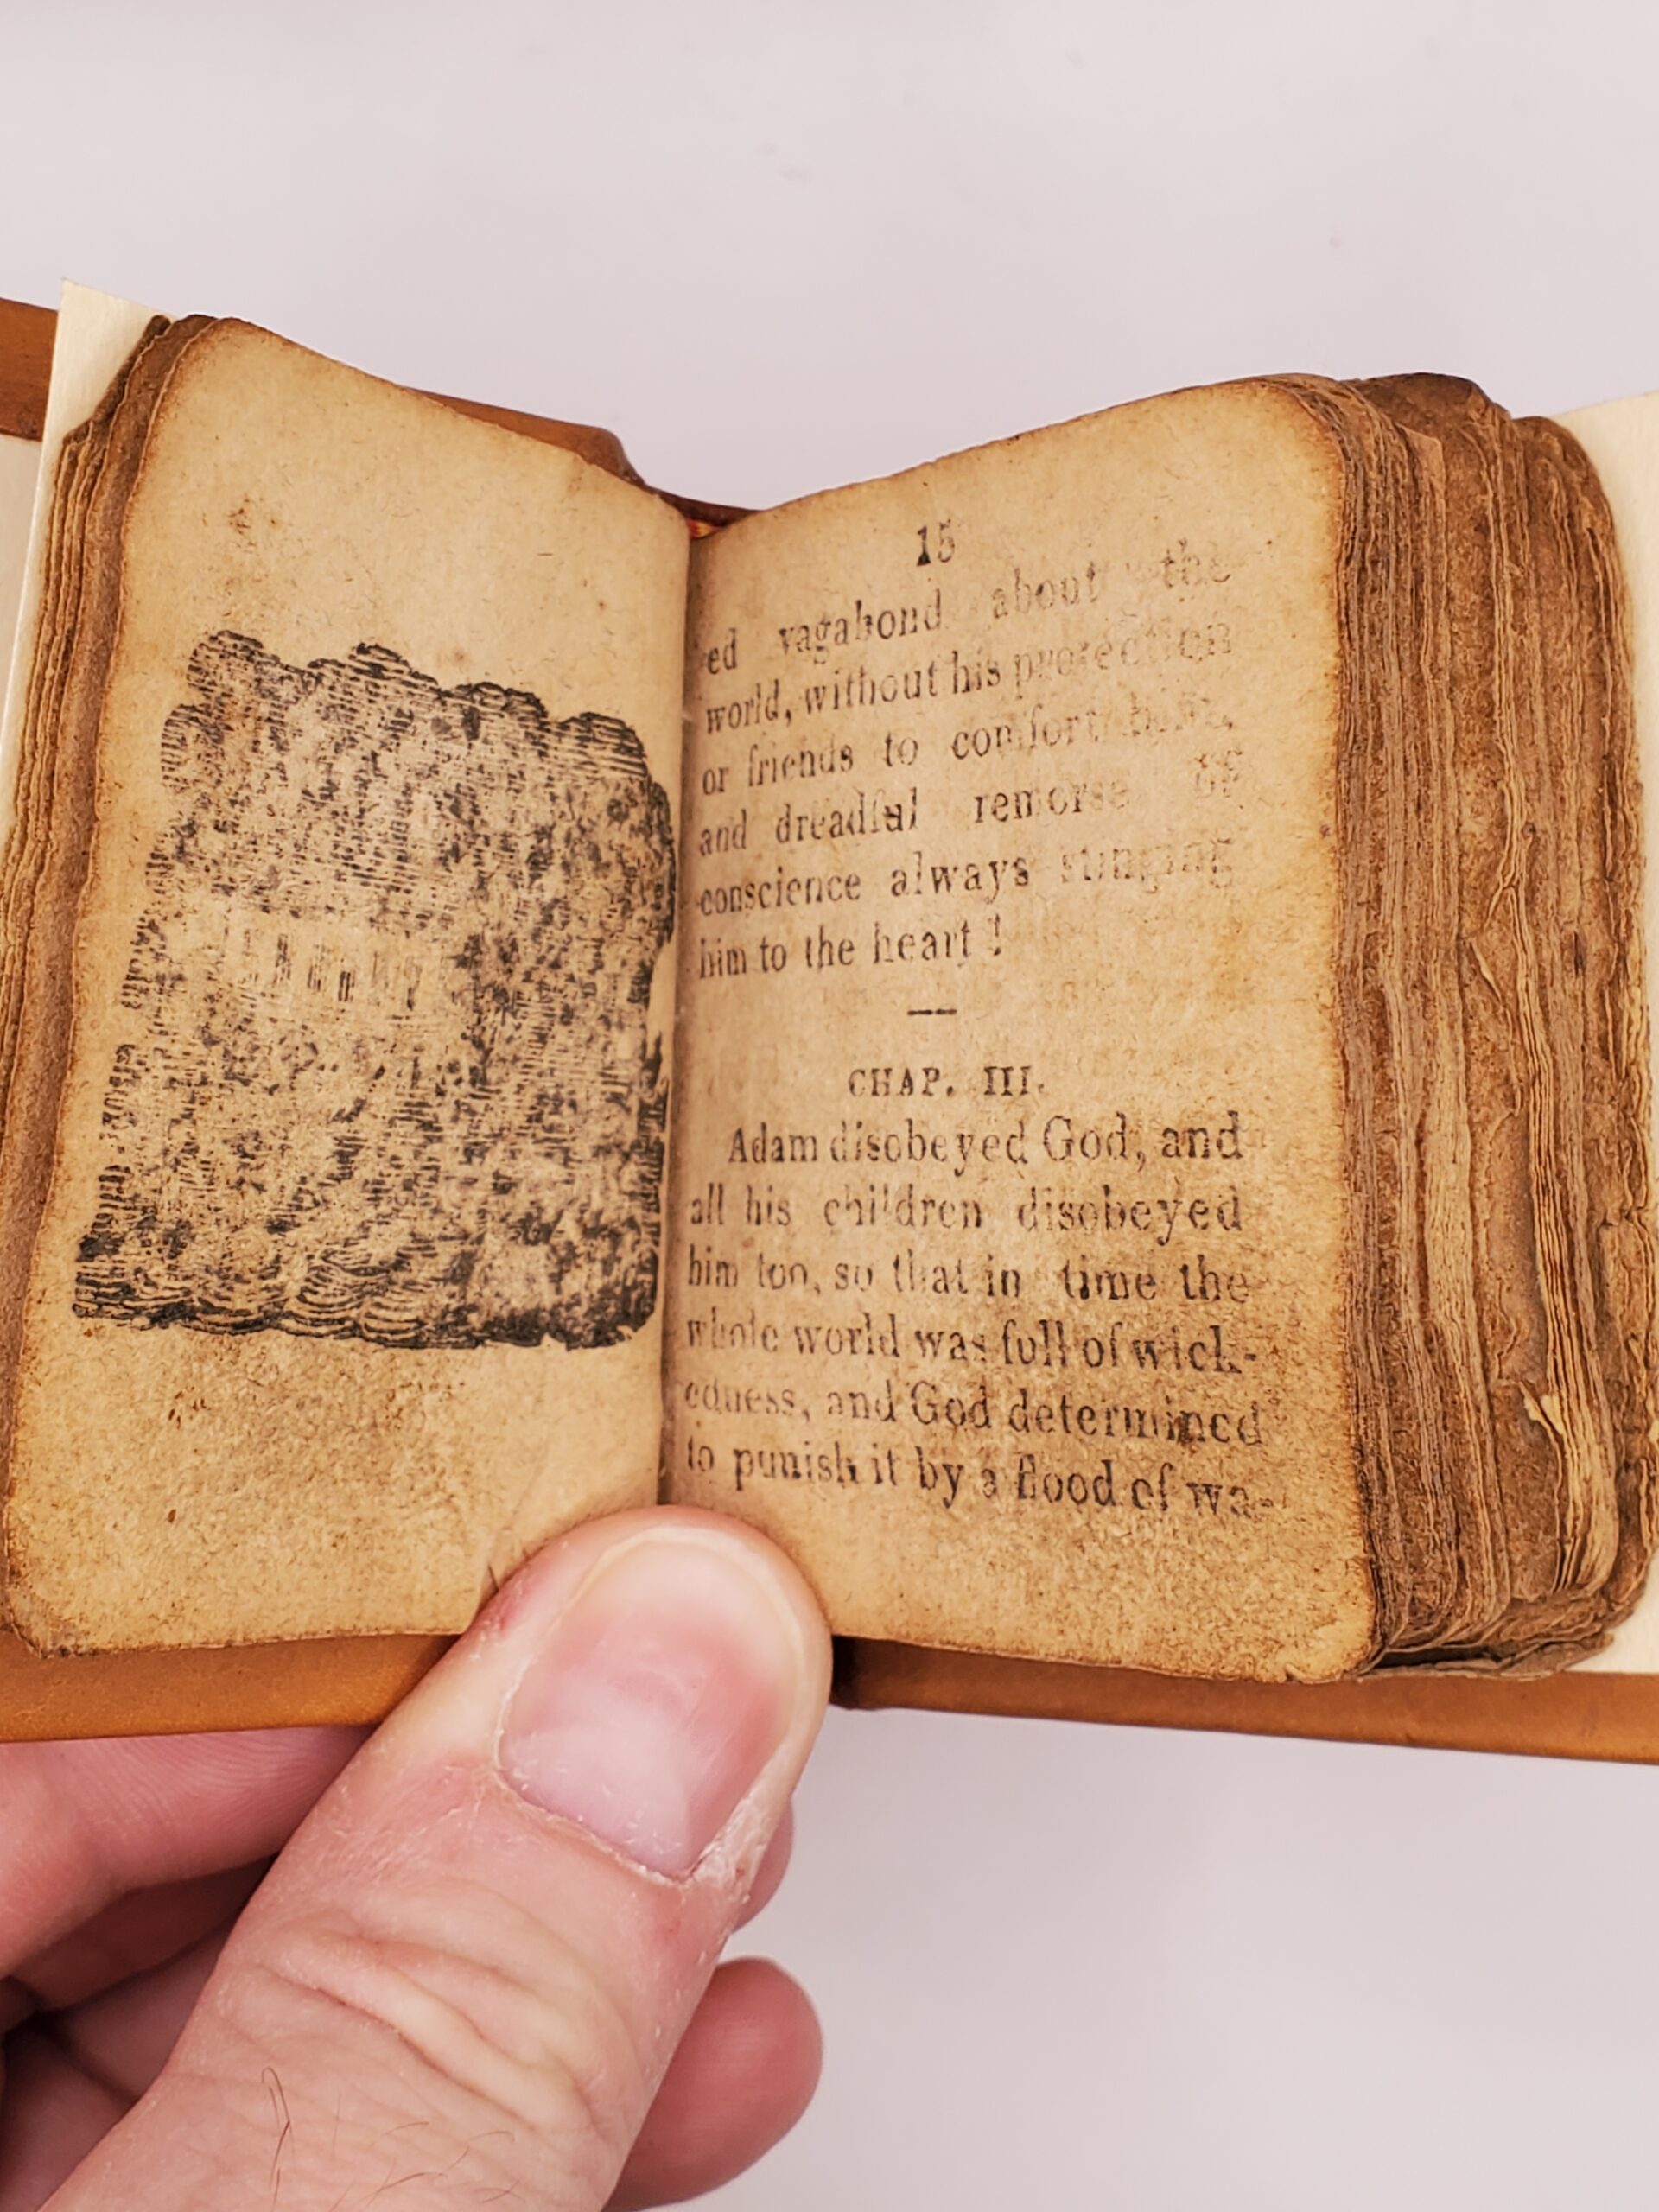 15
ed vagabond about the
world, without his protection
or friends to comfort him,
and dreadful remorse of
conscience always stinging
him to the heart !
CHAP. III.
Adam disobeyed God, and
all his children disobeyed
him too, so that in time the
whole world was full of wick-
edness, and God determined
to punish it by a flood of wa-